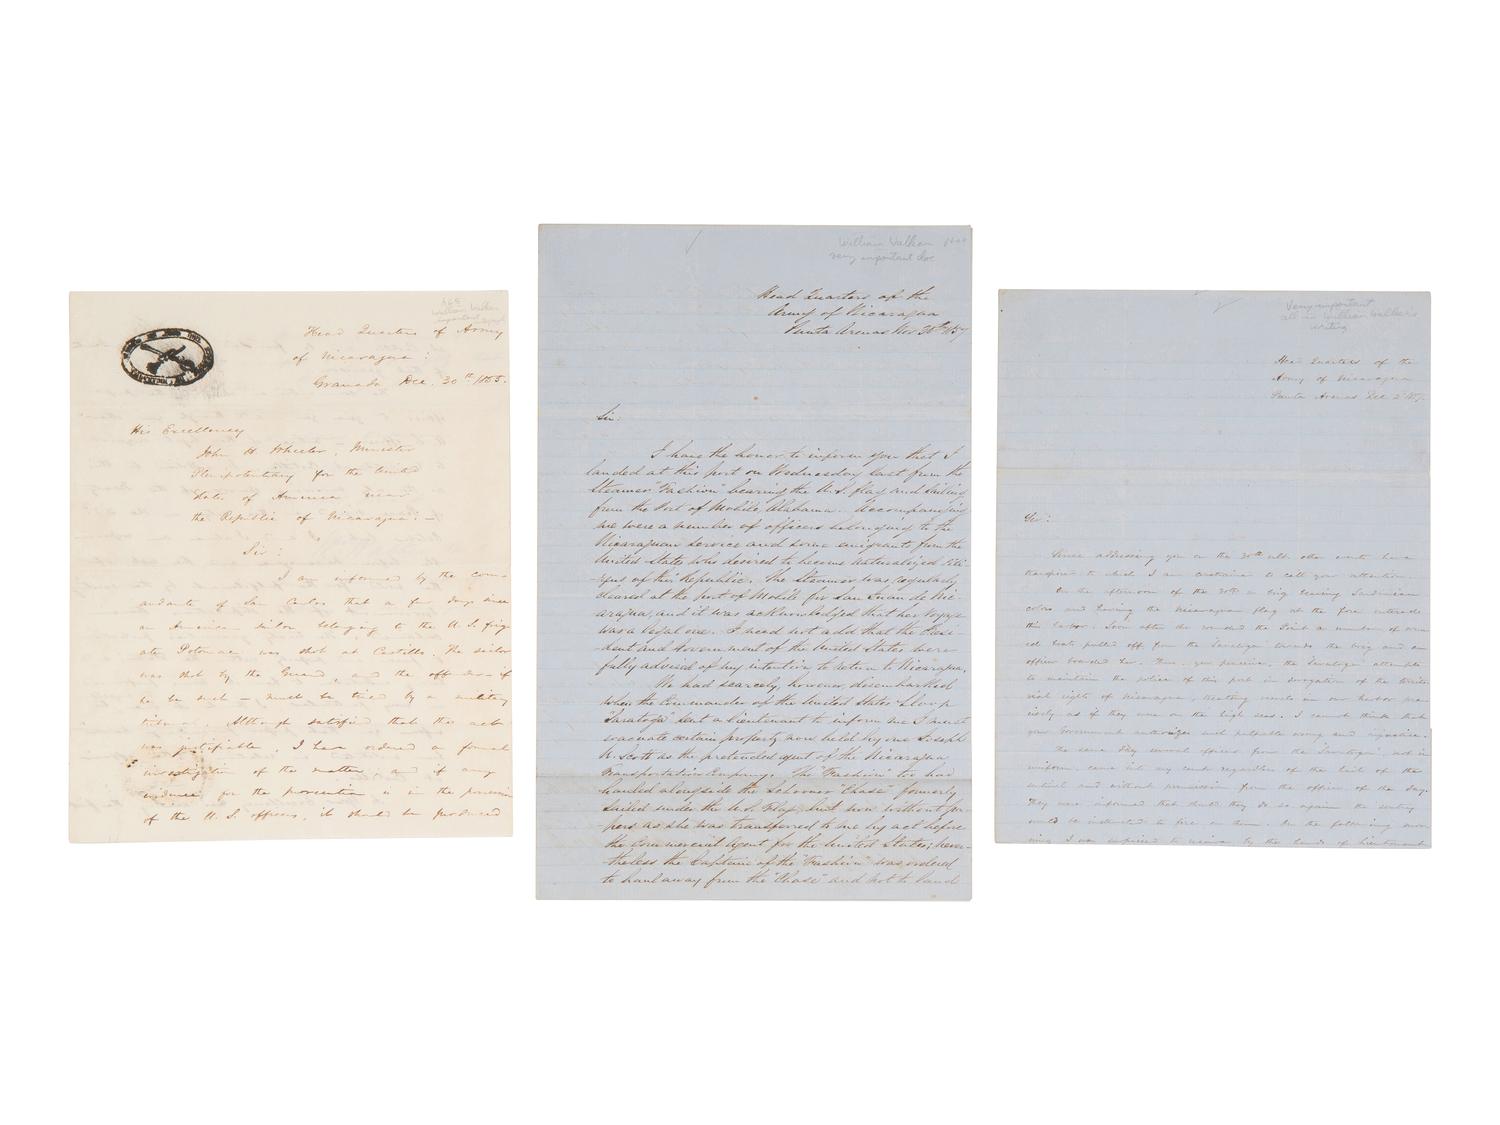 ALS
William Walker
important
Head Quarters of Army
of Nicaragua:
Granada Dec. 30th 1855.
His Excellency
John H. Wheeler, Minister
Plenipotentiary for the United
States of America near
the Republic of Nicaragua:—
Sir:
I am informed by the com-
andante of San Carlos that a few days since
an American sailor belonging to the U.S. frig-
ate Potomac was shot at Castillo. The sailor
was shot by the Guard, and the offender—if
he be such—must be tried by a military
tribunal. Although satisfied that the act
was justifiable, I have ordered a formal
investigation of the matter and if any
evidence for the prosecution is in the possession
of the U.S. officers, it should be produced
William Walker
very important doc
Head Quarters of the
Army of Nicaragua
Punta Arenas Nov 30th 1857
Sir:
I have the honor to inform you that I
landed at this port on Wednesday last from the
Steamer "Fashion" bearing the U.S. flag and sailing
from the Port of Mobile, Alabama. Accompanying
me were a number of officers belonging to the
Nicaraguan service and some emigrants from the
United States who desired to become naturalized citi-
-zens of this Republic. The Steamer was regularly
cleared at the port of Mobile for San Juan de Nic-
aragua, and it was acknowledged that her voyage
was a legal one. I need not add that the Presi-
-dent and Government of the United States were
fully advised of my intention to return to Nicaragua.
We had scarcely, however, disembarked
when the Commander of the United States Sloop
"Saratoga" sent a lieutenant to inform me I must
evacuate certain property now held by one Joseph
N. Scott as the pretended agent of the Nicaragua
Transportation Company. The "Fashion" too had
hauled alongside the Schooner "Chase" formerly
sailed under the U.S. Flag, but now without pa-
-pers as she was transferred to me by act before
the Commercial Agent for the United States; never-
-theless the Captain of the "Fashion" was ordered
to haul away from the "Chase" and not to land
Very important
all in William Walker's
writing
Head Quarters of the
Army of Nicaragua
Punta Arenas Dec 2d 1857
Sir:
Since addressing you on the 30th ult. other events have
transpired to which I am constrained to call your attention.
On the afternoon of the 30th a brig bearing Sardinian
colors and having the Nicaragua flag at the fore entered
this harbor. Soon after she rounded the Point a number of arm-
ed boats pulled off from the Saratoga towards the brig and an
officer boarded her. Thus, you perceive, the Saratoga attempts
to maintain the police of this port in derogation of the territo-
rial rights of Nicaragua, treating vessels in our harbor pre-
cisely as if they were on the high seas. I cannot think that
your Government authorizes such palpable wrong and injustice.
The same day several officers from the "Saratoga", not in
uniform, came into my camp regardless of the hail of the
sentinel and without permission from the officer of the day.
They were informed that should they do so again the sentry
would be instructed to fire on them. On the following morn-
ing I was by the hands of Lieutenant